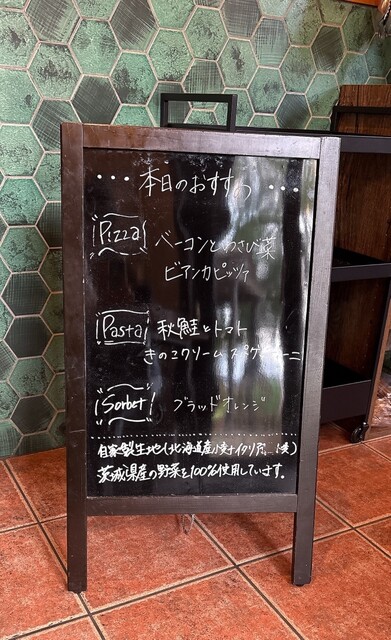 ・・・本日のおすすめ・・・
Pizza ベーコンとわさび菜
ビアンカピッツァ
Pasta 秋鮭とトマト
きのこクリームスパゲティーニ
Sorbet ブラッドオレンジ
自家製生地(北海道産小麦+イタリア産小麦)
茨城県産の野菜を100%使用しています。